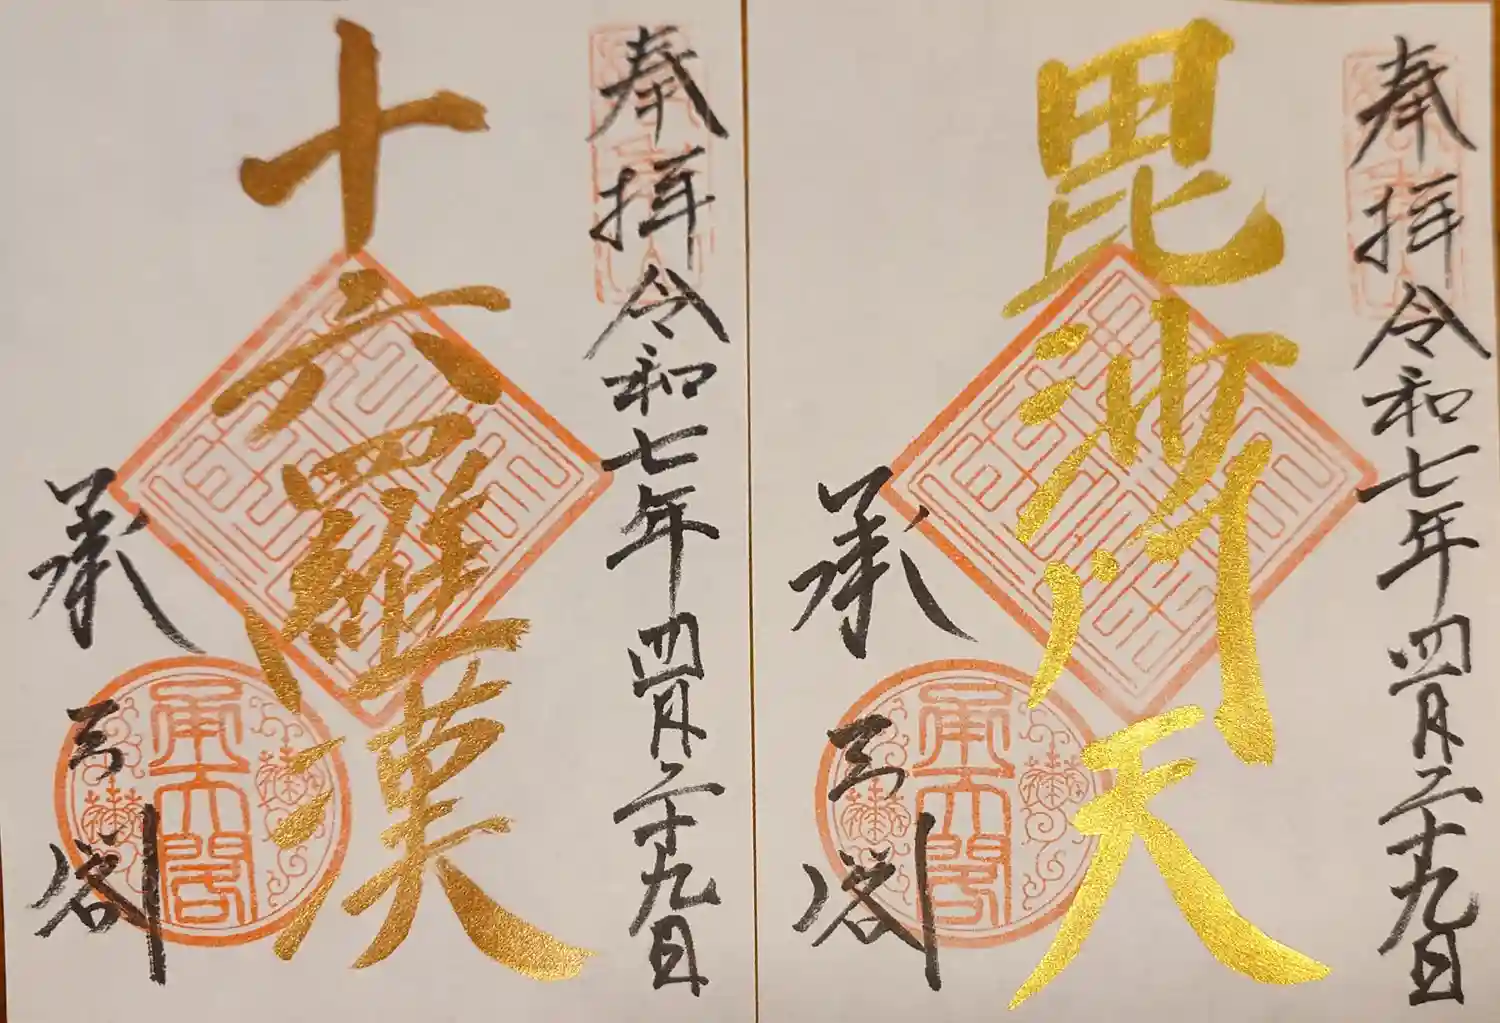 奉拝 令和七年四月二十九日
毘沙門天
承天閣
承天閣
奉拝 令和七年四月二十九日
十六羅漢
承天閣
承天閣